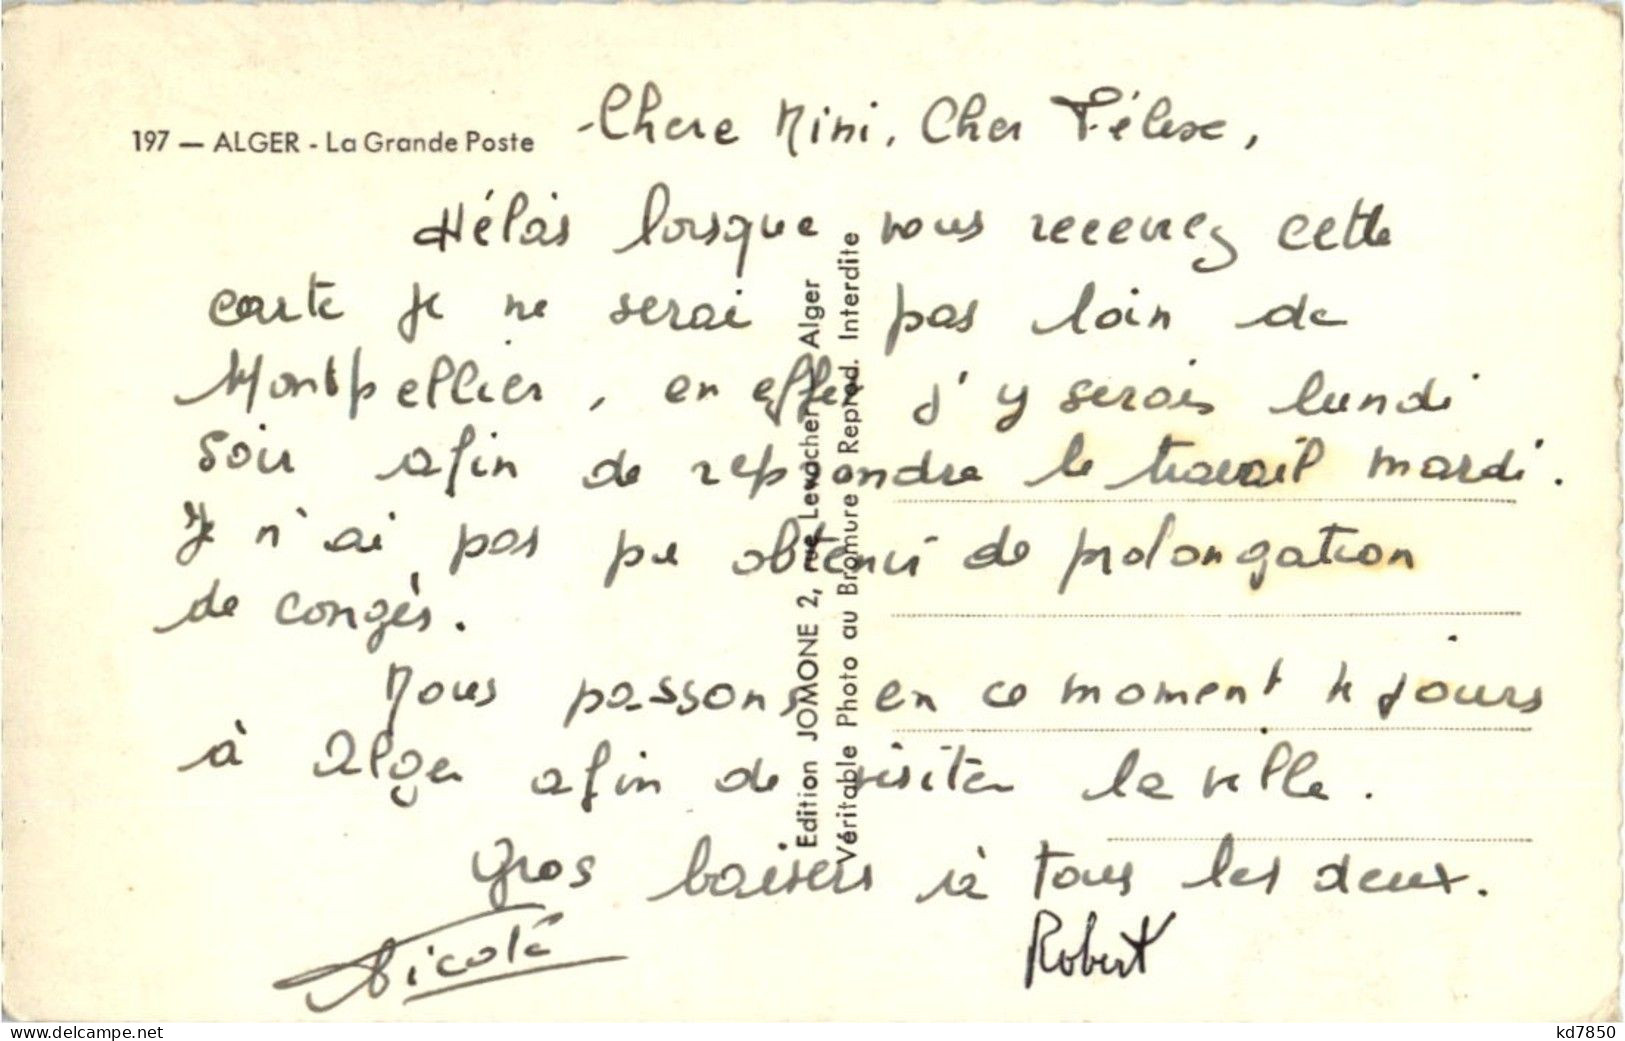 197 — ALGER - La Grande Poste
Chere Mini, Cher Félix,
Hélàs lorsque vous recevrez cette
carte je ne serai pas loin de
Montpellier, en effet j'y serais lundi
soir afin de reprendre le travail mardi.
Je n'ai pas pu obtenir de prolongation
de congés.
Nous passons en ce moment 4 jours
à Alger afin de visiter la ville.
Gros baisers à tous les deux.
Nicole
Robert
Edition JOMONE 2, rue Levacher Alger
Véritable Photo au Bromure Reprod. Interdite
www.delcampe.net
kd7850